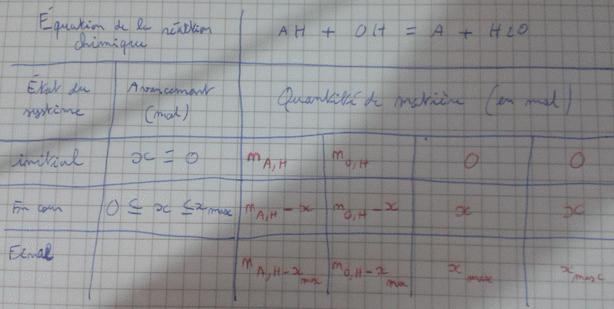 Équation de la réaction
chimique
AH + OH = A + H2O
État du
système
Avancement
(mol)
Quantité de matière (en mol)
initial
x = 0
n A,H
n O,H
0
0
En cours
0 ≤ x ≤ x max
n A,H - x
n O,H - x
x
x
Final
n A,H - x max
n O,H - x max
x max
x max